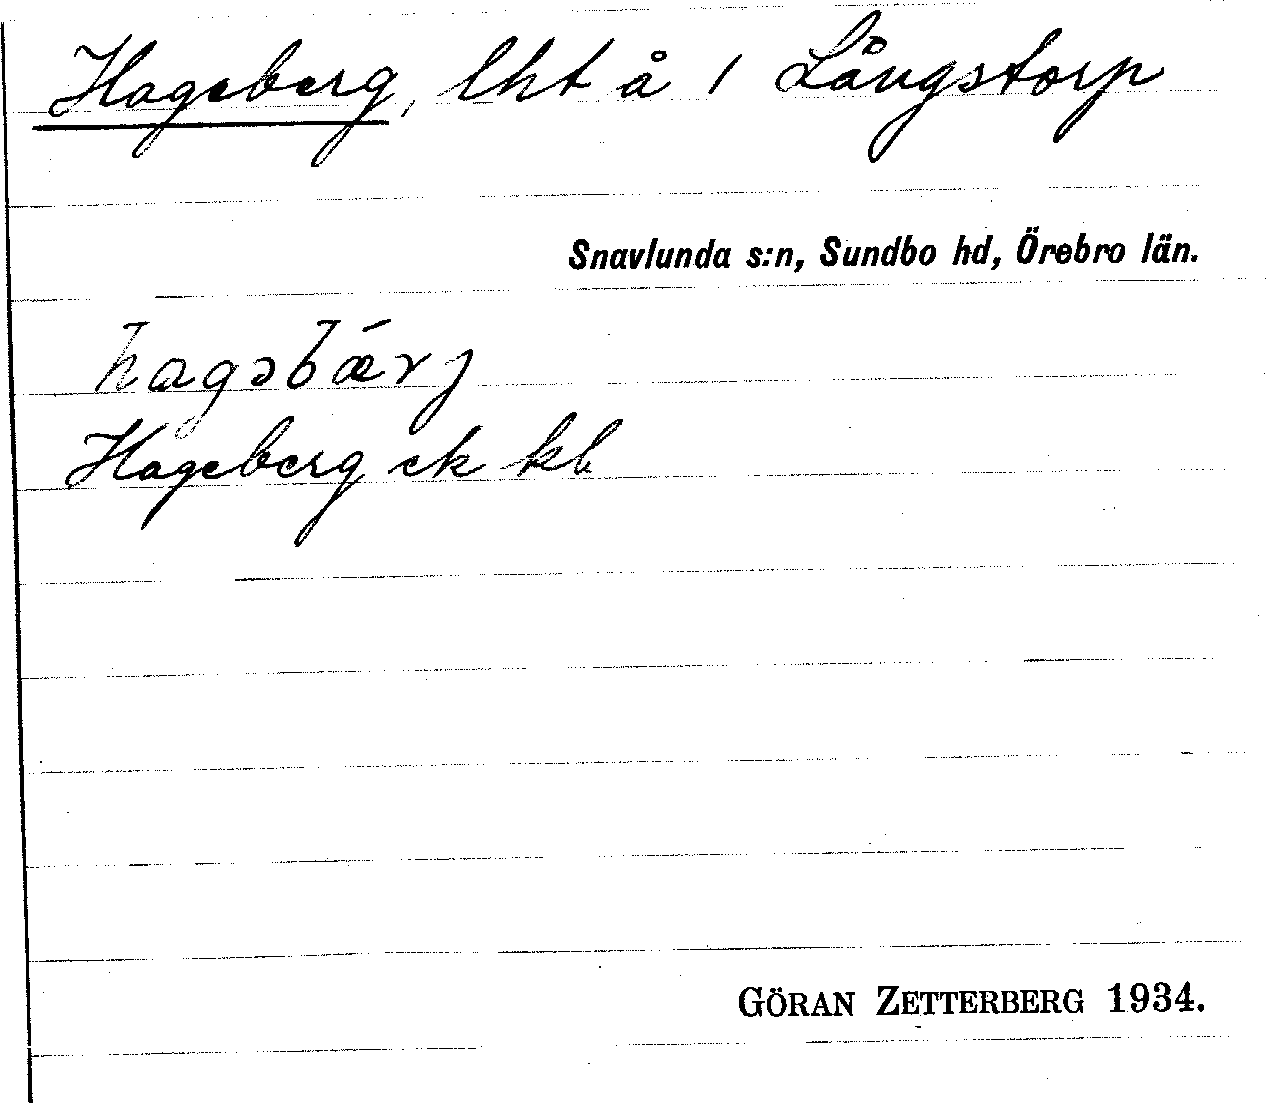 Hageberg, lht å 1 Långstorp
Snavlunda s:n, Sundbo hd, Örebro län.
hagəbærj
Hageberg ek kb
GÖRAN ZETTERBERG 1934.